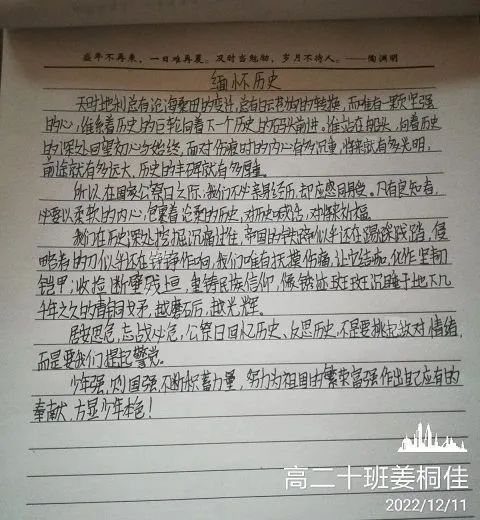 盛年不再来，一日难再晨。及时当勉励，岁月不待人。——陶渊明
缅怀历史
天时地利总有沧海桑田的变迁，总有白云苍狗的转换，而唯有一颗坚强
的心，维系着历史的巨轮向着下一个历史的码头前进。谁站在船头，向着历史
的深处回望初心与始终，面对伤痕时的内心有多沉重，将来就有多光明，
前途就有多远大，历史的丰碑就有多厚重。
所以在国家公祭日之际，我们不必亲身经历，却应感同身受。只有良知者，
必要以柔软的内心，包裹着沧桑的历史，对历史喊话，对将来祈福。
我们在历史深处挖掘沉痛过往，帝国的铁蹄似乎还在踢踩践踏，侵
略者的刀似乎还在铮铮作响，我们唯有抚摸伤痛，让它结痂，化作坚韧
铠甲；收捡断壁残垣，重铸民族信仰，像锈迹斑斑沉睡于地下几
千年之久的青铜戈矛，越磨石后，越光辉。
居安思危，忘战必危，公祭日回忆历史、反思历史，不是要挑起敌对情绪，
而是要我们提起警觉。
少年强，则国强，不断积蓄力量，努力为祖国的繁荣富强作出自己应有的
奉献，方显少年本色！
高二十班姜桐佳
2022/12/11